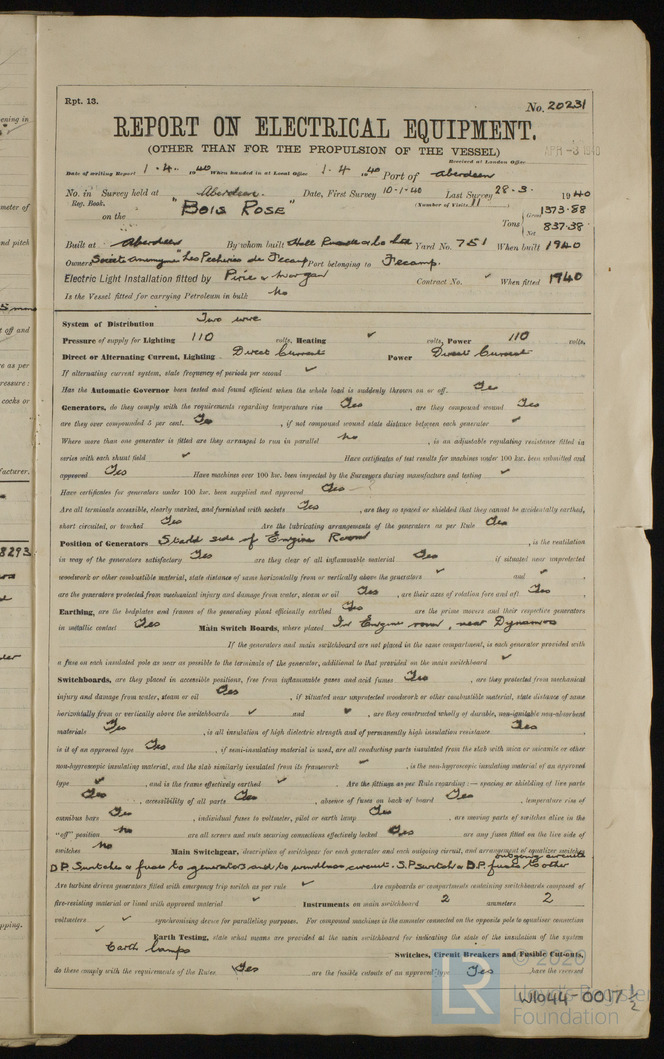 Rpt. 13.
No. 20231
REPORT ON ELECTRICAL EQUIPMENT.
(OTHER THAN FOR THE PROPULSION OF THE VESSEL)
Received at London Office APR -3 1940
Date of writing Report 1.4. 1940 When handed in at Local Office 1.4. 1940 Port of Aberdeen
No. in Survey held at Aberdeen. Date, First Survey 10-1-40 Last Survey 28.3. 1940
Reg. Book. (Number of Visits 11)
on the "BOIS ROSE" Tons {Gross 1373.88
Net 837.38
Built at Aberdeen By whom built Hall Russell & Co Ltd Yard No. 751 When built 1940
Owners Société Anonyme "Les Pecheries de Fecamp" Port belonging to Fecamp.
Electric Light Installation fitted by Pirie & Morgan Contract No. ✓ When fitted 1940
Is the Vessel fitted for carrying Petroleum in bulk No
System of Distribution Two wire
Pressure of supply for Lighting 110 volts, Heating ✓ volts, Power 110 volts.
Direct or Alternating Current, Lighting Direct Current Power Direct Current
If alternating current system, state frequency of periods per second ✓
Has the Automatic Governor been tested and found efficient when the whole load is suddenly thrown on or off. Yes
Generators, do they comply with the requirements regarding temperature rise Yes, are they compound wound Yes
are they over compounded 5 per cent. Yes, if not compound wound state distance between each generator ✓
Where more than one generator is fitted are they arranged to run in parallel No, is an adjustable regulating resistance fitted in
series with each shunt field ✓ Have certificates of test results for machines under 100 kw. been submitted and
approved Yes Have machines over 100 kw. been inspected by the Surveyors during manufacture and testing ✓
Have certificates for generators under 100 kw. been supplied and approved Yes
Are all terminals accessible, clearly marked, and furnished with sockets Yes, are they so spaced or shielded that they cannot be accidentally earthed,
short circuited, or touched Yes Are the lubricating arrangements of the generators as per Rule Yes
Position of Generators Starbd side of Engine Room, is the ventilation
in way of the generators satisfactory Yes are they clear of all inflammable material Yes if situated near unprotected
woodwork or other combustible material, state distance of same horizontally from or vertically above the generators ✓ and ✓,
are the generators protected from mechanical injury and damage from water, steam or oil Yes, are their axes of rotation fore and aft Yes.
Earthing, are the bedplates and frames of the generating plant efficiently earthed Yes are the prime movers and their respective generators
in metallic contact Yes Main Switch Boards, where placed In Engine room, near Dynamos
If the generators and main switchboard are not placed in the same compartment, is each generator provided with
a fuse on each insulated pole as near as possible to the terminals of the generator, additional to that provided on the main switchboard ✓
Switchboards, are they placed in accessible positions, free from inflammable gases and acid fumes Yes, are they protected from mechanical
injury and damage from water, steam or oil Yes, if situated near unprotected woodwork or other combustible material, state distance of same
horizontally from or vertically above the switchboards ✓ and ✓, are they constructed wholly of durable, non-ignitable non-absorbent
materials Yes, is all insulation of high dielectric strength and of permanently high insulation resistance Yes,
is it of an approved type Yes, if semi-insulating material is used, are all conducting parts insulated from the slab with mica or micanite or other
non-hygroscopic insulating material, and the slab similarly insulated from its framework ✓, is the non-hygroscopic insulating material of an approved
type ✓, and is the frame effectively earthed ✓. Are the fittings as per Rule regarding :— spacing or shielding of live parts
Yes, accessibility of all parts Yes, absence of fuses on back of board Yes, temperature rise of
omnibus bars Yes, individual fuses to voltmeter, pilot or earth lamp Yes, are moving parts of switches alive in the
"off" position No are all screws and nuts securing connections effectively locked Yes are any fuses fitted on the live side of
switches No Main Switchgear, description of switchgear for each generator and each outgoing circuit, and arrangement of equalizer switches
D.P. Switches & fuses to generators and to windlass circuit. S.P. switch & D.P. fuses to other outgoing circuits
Are turbine driven generators fitted with emergency trip switch as per rule ✓ Are cupboards or compartments containing switchboards composed of
fire-resisting material or lined with approved material ✓ Instruments on main switchboard 2 ammeters 2
voltmeters ✓ synchronising device for paralleling purposes. For compound machines is the ammeter connected on the opposite pole to equaliser connection
✓ Earth Testing, state what means are provided at the main switchboard for indicating the state of the insulation of the system
Earth lamps Switches, Circuit Breakers and Fusible Cut-outs,
do these comply with the requirements of the Rules Yes are the fusible cutouts of an approved type Yes have the reversed
© 2020
LR
Lloyd's Register
Foundation
W1044-0017 ½